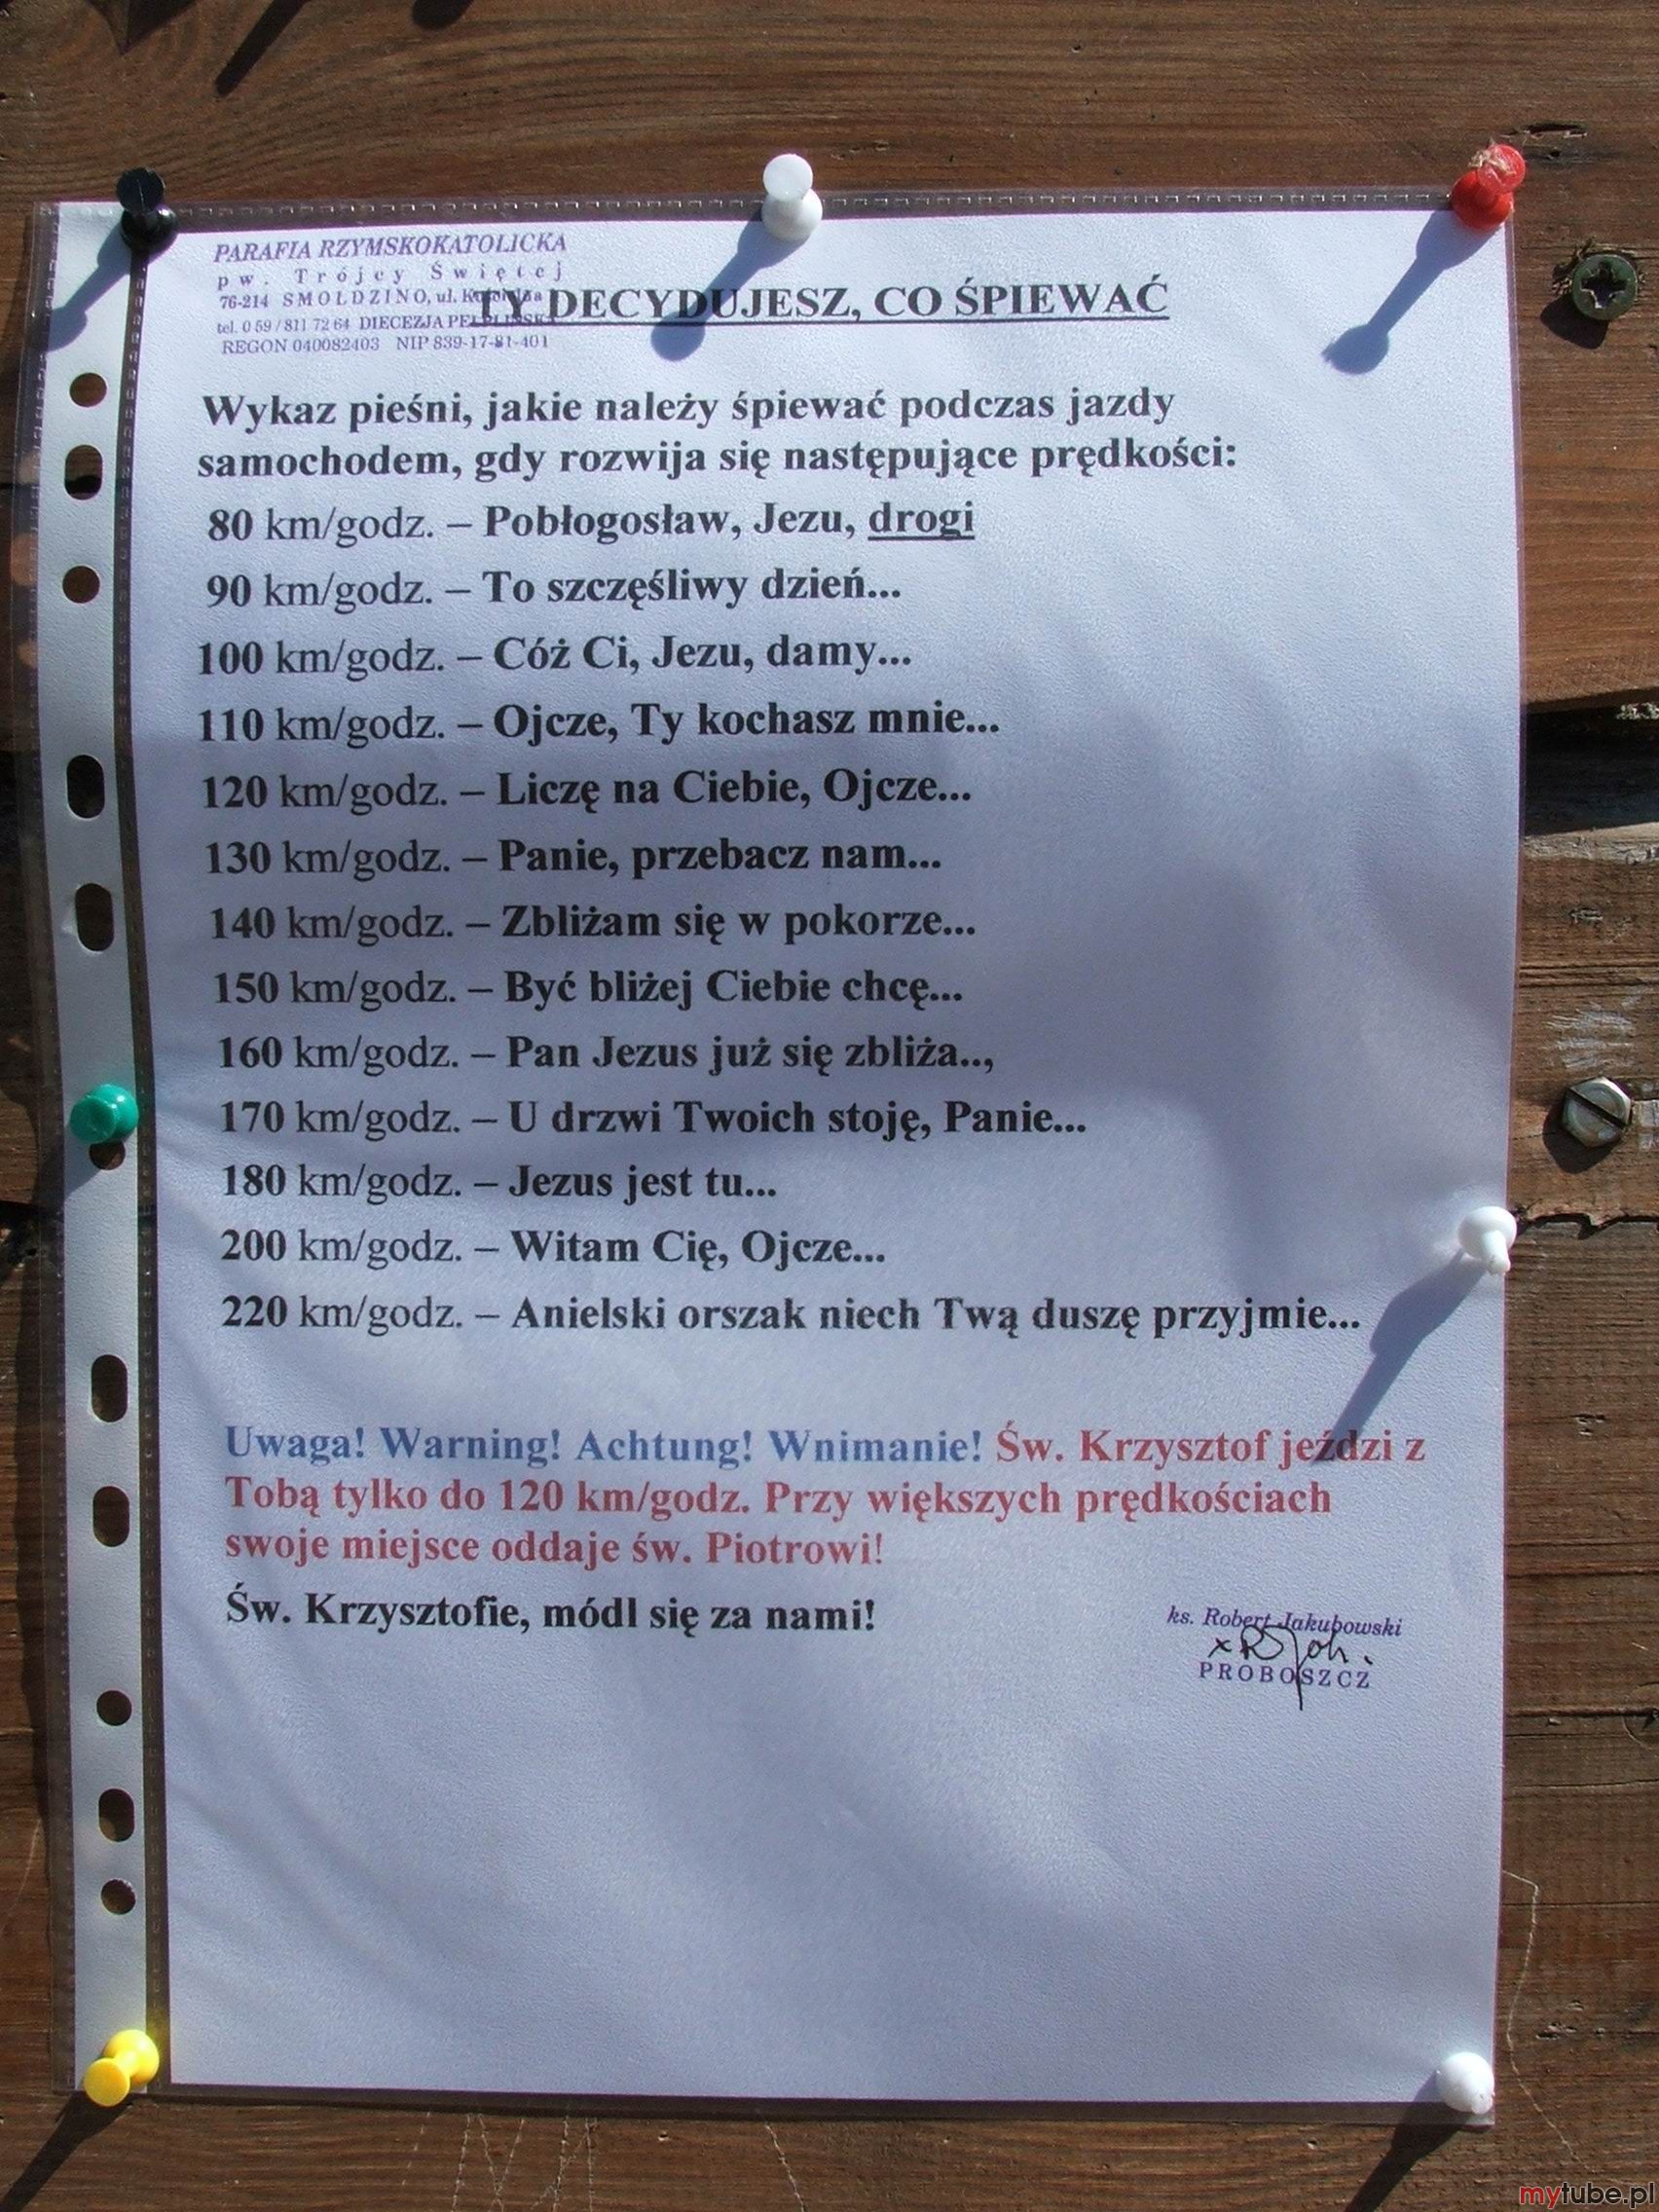 PARAFIA RZYMSKOKATOLICKA
pw. Trójcy Świętej
76-214 SMOŁDZINO, ul. Kościelna
TY DECYDUJESZ, CO ŚPIEWAĆ
tel. 0 59 / 811 72 64 DIECEZJA PELPLIŃSKA
REGON 040082403 NIP 839-17-81-401
Wykaz pieśni, jakie należy śpiewać podczas jazdy
samochodem, gdy rozwija się następujące prędkości:
80 km/godz. – Pobłogosław, Jezu, drogi
90 km/godz. – To szczęśliwy dzień...
100 km/godz. – Cóż Ci, Jezu, damy...
110 km/godz. – Ojcze, Ty kochasz mnie...
120 km/godz. – Liczę na Ciebie, Ojcze...
130 km/godz. – Panie, przebacz nam...
140 km/godz. – Zbliżam się w pokorze...
150 km/godz. – Być bliżej Ciebie chcę...
160 km/godz. – Pan Jezus już się zbliża..,
170 km/godz. – U drzwi Twoich stoję, Panie...
180 km/godz. – Jezus jest tu...
200 km/godz. – Witam Cię, Ojcze...
220 km/godz. – Anielski orszak niech Twą duszę przyjmie...
Uwaga! Warning! Achtung! Wnimanie! Św. Krzysztof jeździ z
Tobą tylko do 120 km/godz. Przy większych prędkościach
swoje miejsce oddaje św. Piotrowi!
Św. Krzysztofie, módl się za nami!
ks. Robert Jakubowski
PROBOSZCZ
mytube.pl